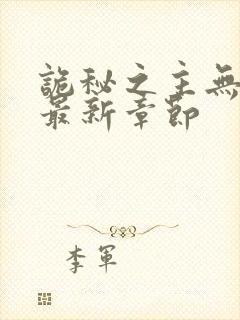 詭秘之主無
最新章節
李軍